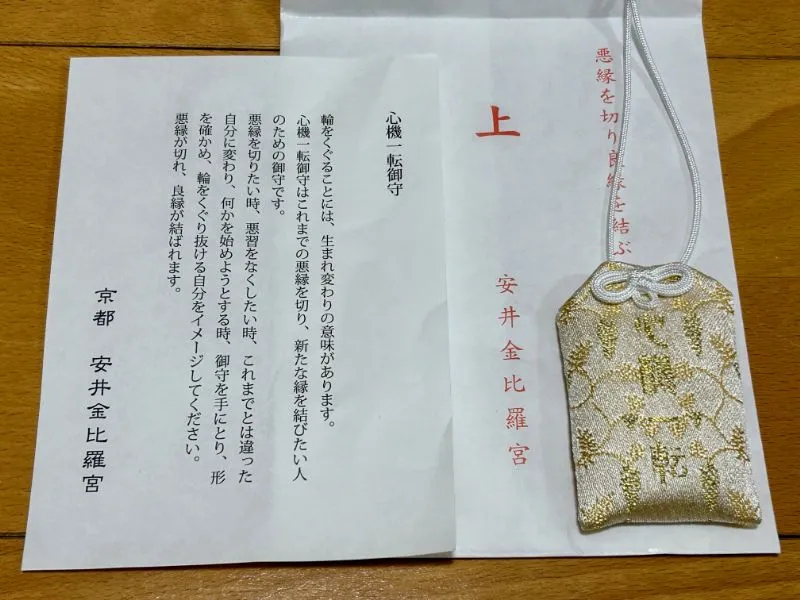 悪縁を切り良縁を結ぶ
上
安井金比羅宮
心機一転
心機一転御守
輪をくぐることには、生まれ変わりの意味があります。
心機一転御守はこれまでの悪縁を切り、新たな縁を結びたい人
のための御守です。
悪縁を切りたい時、悪習をなくしたい時、これまでとは違った
自分に変わり、何かを始めようとする時、御守を手にとり、形
を確かめ、輪をくぐり抜ける自分をイメージしてください。
悪縁が切れ、良縁が結ばれます。
京都 安井金比羅宮